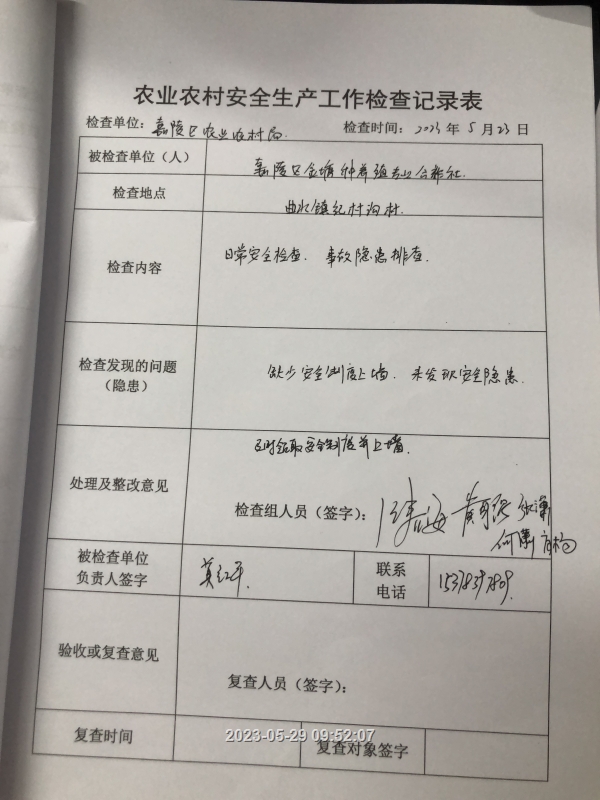 农业农村安全生产工作检查记录表
检查单位：嘉陵区农业农村局. 检查时间：2023年5月23日
被检查单位（人） 嘉陵区金塘种养殖专业合作社
检查地点 曲水镇纪村沟村
检查内容 日常安全检查. 事故隐患排查.
检查发现的问题（隐患） 缺少安全制度上墙. 未发现安全隐患.
及时领取安全制度并上墙.
处理及整改意见
检查组人员（签字）：
被检查单位负责人签字 莫红平. 联系电话
验收或复查意见
复查人员（签字）：
复查时间 复查对象签字
2023-05-29 09:52:07